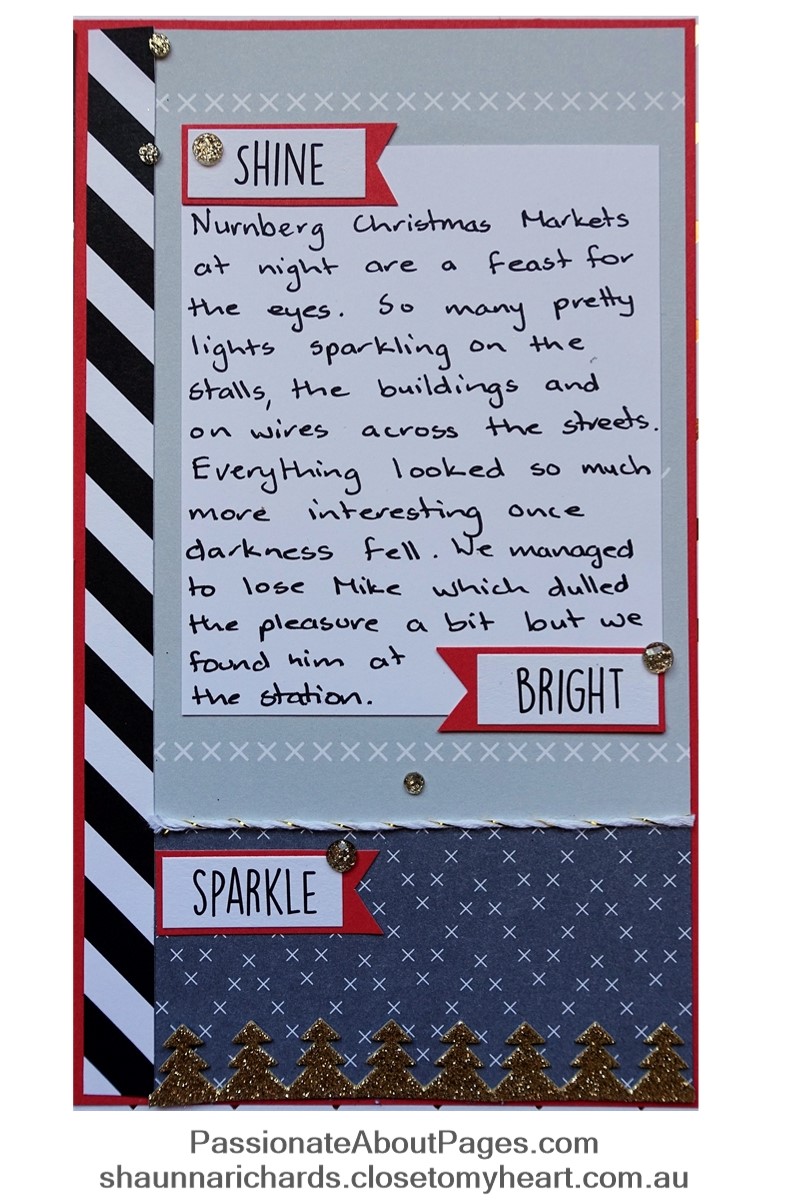 SHINE
Nurnberg Christmas Markets
at night are a feast for
the eyes. So many pretty
lights sparkling on the
stalls, the buildings and
on wires across the streets.
Everything looked so much
more interesting once
darkness fell. We managed
to lose Mike which dulled
the pleasure a bit but we
found him at
the station.
BRIGHT
SPARKLE
PassionateAboutPages.com
shaunnarichards.closetomyheart.com.au